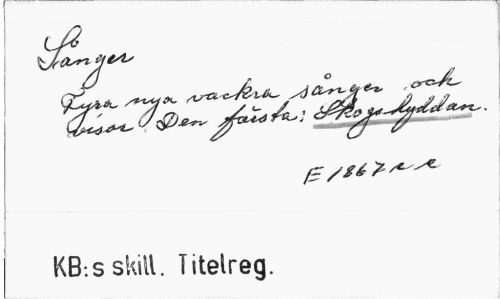 Sånger
Fyra nya vackra sånger och
visor Den första: Skogshyddan.
E 1867 e e
KB:s skill. Titelreg.